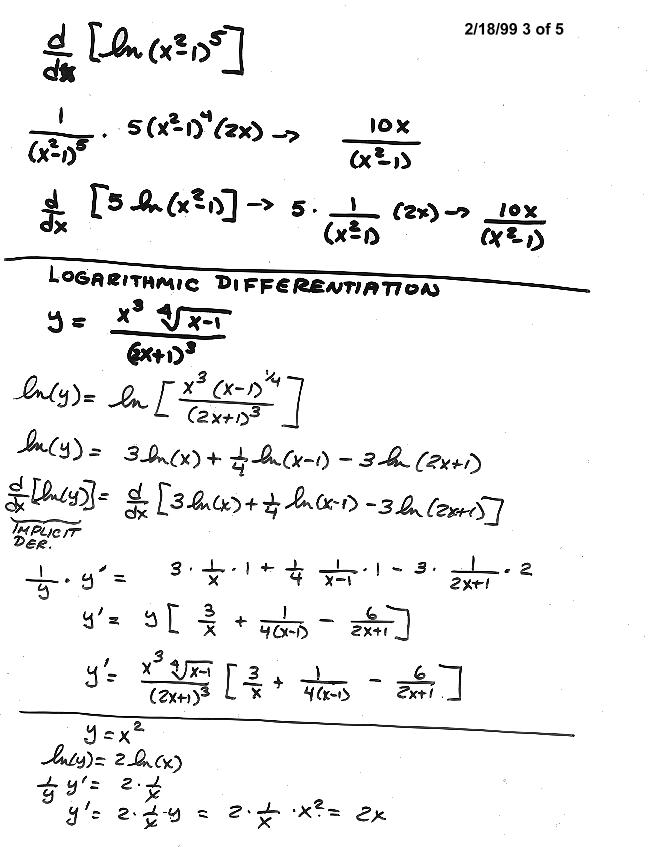 2/18/99 3 of 5
d/dx [ln (x²-1)⁵]
1/(x²-1)⁵ · 5(x²-1)⁴(2x) → 10x/(x²-1)
d/dx [5 ln (x²-1)] → 5 · 1/(x²-1) (2x) → 10x/(x²-1)
LOGARITHMIC DIFFERENTIATION
y = x³ ∜(x-1) / (2x+1)³
ln(y) = ln [x³ (x-1)^(1/4) / (2x+1)³]
ln(y) = 3 ln(x) + 1/4 ln(x-1) - 3 ln (2x+1)
d/dx [ln(y)] = d/dx [3 ln(x) + 1/4 ln(x-1) - 3 ln (2x+1)]
IMPLICIT
DER.
1/y · y' = 3 · 1/x · 1 + 1/4 1/(x-1) · 1 - 3 · 1/(2x+1) · 2
y' = y [3/x + 1/4(x-1) - 6/(2x+1)]
y' = x³ ∜(x-1) / (2x+1)³ [3/x + 1/4(x-1) - 6/(2x+1)]
y = x²
ln(y) = 2 ln(x)
1/y y' = 2 · 1/x
y' = 2 · 1/x · y = 2 · 1/x · x² = 2x